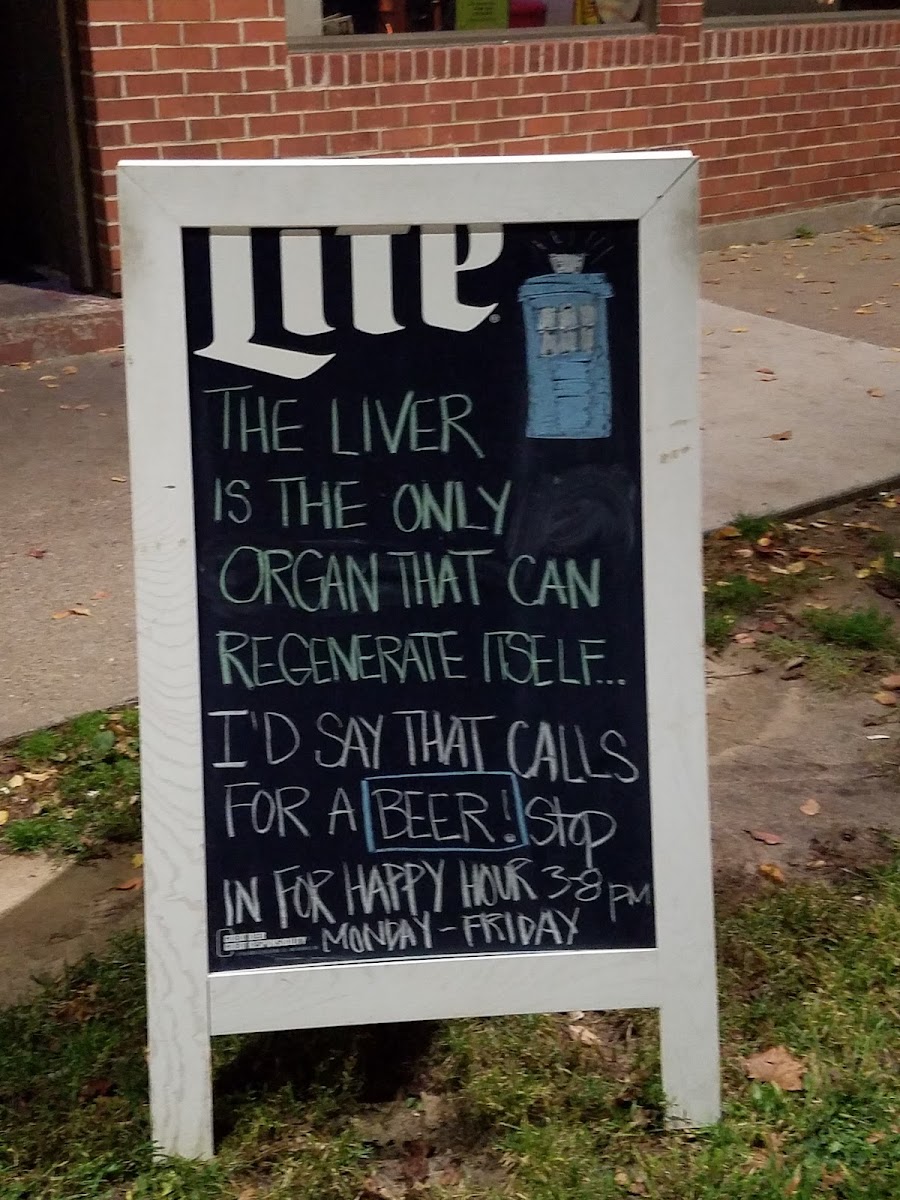 Lite
THE LIVER
IS THE ONLY
ORGAN THAT CAN
REGENERATE ITSELF...
I'D SAY THAT CALLS
FOR A BEER! Stop
IN FOR HAPPY HOUR 3-8 PM
MONDAY - FRIDAY